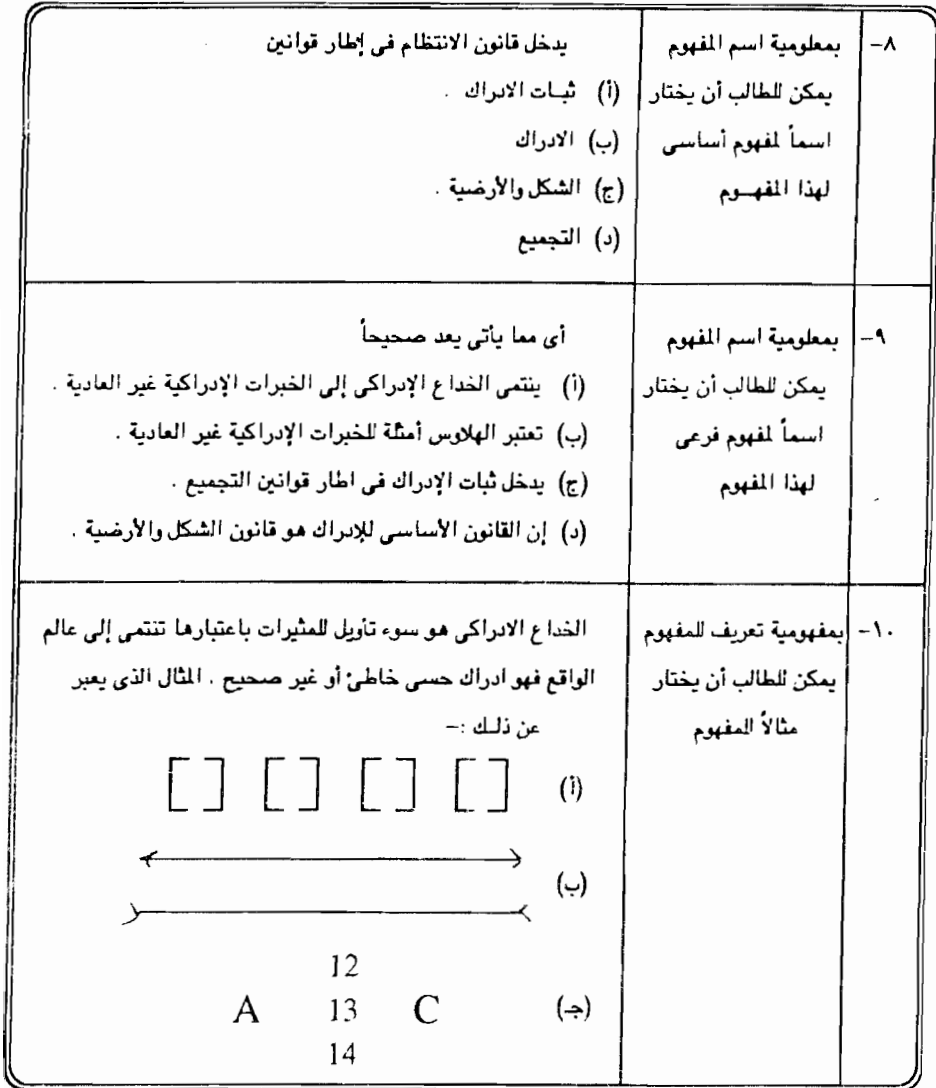 ٨-
بمعلومية اسم المفهوم
يمكن للطالب أن يختار
اسماً لمفهوم أساسى
لهذا المفهــوم
يدخل قانون الانتظام فى إطار قوانين
(أ) ثبـات الادراك .
(ب) الادراك
(ج) الشكل والأرضية .
(د) التجميع
٩-
بمعلومية اسم المفهوم
يمكن للطالب أن يختار
اسماً لمفهوم فرعى
لهذا المفهوم
أى مما يأتى يعد صحيحاً
(أ) ينتمى الخداع الإدراكى إلى الخبرات الإدراكية غير العادية .
(ب) تعتبر الهلاوس أمثلة للخبرات الإدراكية غير العادية .
(ج) يدخل ثبات الإدراك فى اطار قوانين التجميع .
(د) إن القانون الأساسى للإدراك هو قانون الشكل والأرضية .
١٠-
بمفهومية تعريف للمفهوم
يمكن للطالب أن يختار
مثالاً للمفهوم
الخداع الادراكى هو سوء تأويل للمثيرات باعتبارها تنتمى إلى عالم
الواقع فهو ادراك حسى خاطئ أو غير صحيح . المثال الذى يعبر
عن ذلـك :-
(أ) [ ] [ ] [ ] [ ]
(ب)
12
(جـ) A 13 C
14